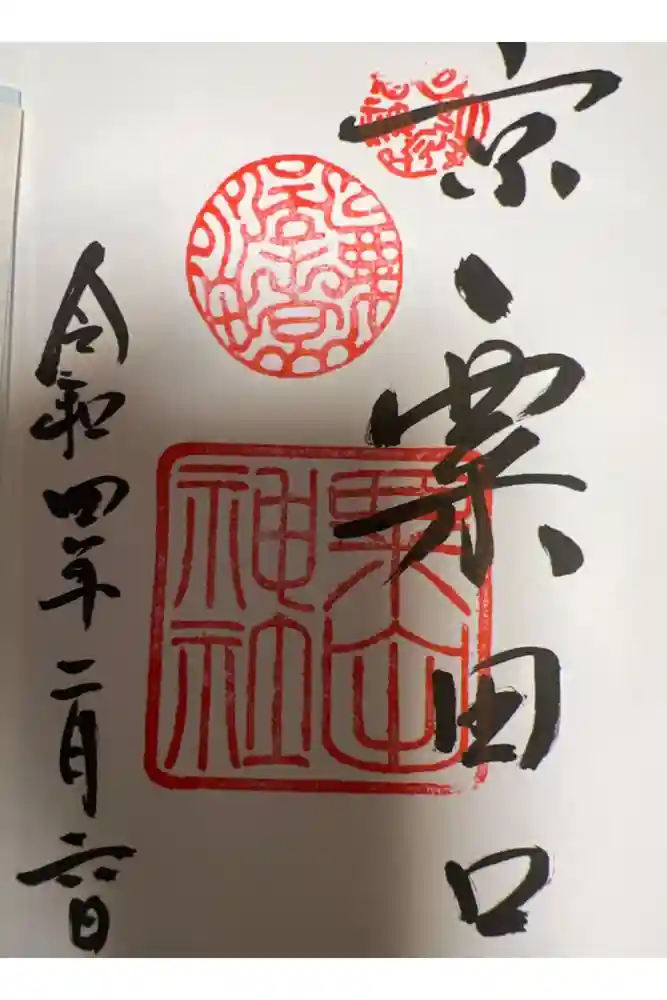 京・粟田口
粟田
神社
令和四年二月六日